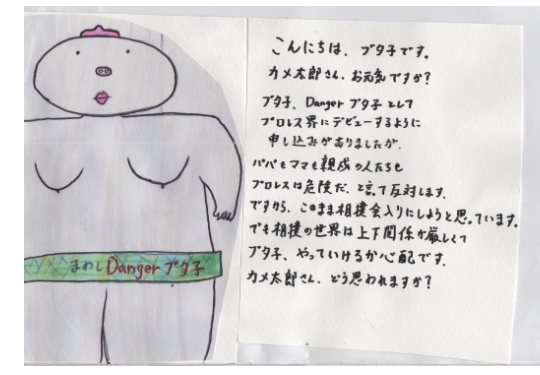 こんにちは、ブタ子です。
カメ太郎さん、お元気ですか?
ブタ子、Danger ブタ子として
プロレス界にデビューするように
申し込みがありましたが、
パパもママも親戚の人たちも
プロレスは危険だ、と言って反対します。
ですから、このまま相撲会入りにしようと思っています。
でも相撲の世界は上下関係が厳しくて
ブタ子、やっていけるか心配です。
カメ太郎さん、どう思われますか?
まわしDangerブタ子